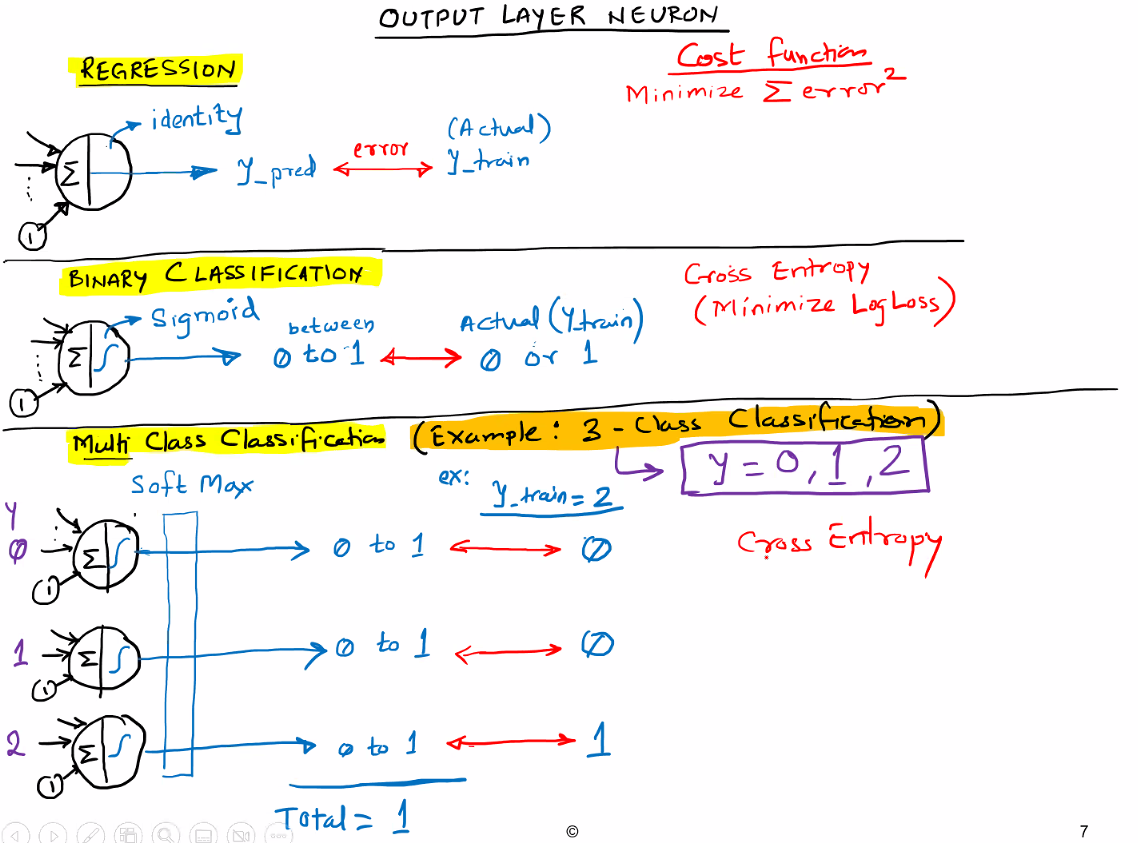 OUTPUT LAYER NEURON
REGRESSION
Cost function
Minimize Σ error²
identity
(Actual)
Σ
y_pred
error
y_train
1
BINARY CLASSIFICATION
Cross Entropy
(Minimize LogLoss)
Sigmoid
between
Actual (y_train)
Σ
0 to 1
0 or 1
1
Multi Class Classification (Example: 3 - Class Classification)
y = 0, 1, 2
Soft Max
ex:
y_train = 2
y
0
Σ
0 to 1
0
Cross Entropy
1
1
Σ
0 to 1
0
1
2
Σ
0 to 1
1
1
Total = 1
©
7